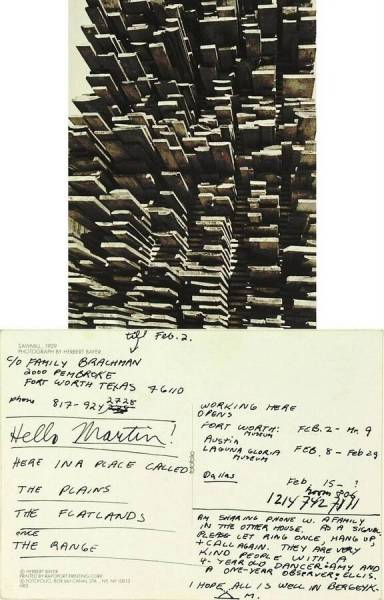 till Feb. 2.
SAWMILL, 1929
PHOTOGRAPH BY HERBERT BAYER
C/O FAMILY BRACHMAN
2000 PEMBROKE
FORT WORTH TEXAS 76110
phone 817-924 2728
Hello Martin!
HERE IN A PLACE CALLED
THE PLAINS
THE FLATLANDS
once
THE RANGE
© HERBERT BAYER
PRINTED BY RAPOPORT PRINTING CORP.
© FOTOFOLIO, BOX 661 CANAL STA., NY, NY 10013
fotofolio
WORKING HERE
OPENS
FORT WORTH: FEB. 2 - Mr. 9
MUSEUM
Austin
LAGUNA GLORIA FEB. 8 - Feb 29
MUSEUM
Dallas Feb. 15 - ?
room 906
1214 742 7111
AM SHARING PHONE W. A FAMILY
IN THE OTHER HOUSE. AS A SIGNAL
PLEASE LET RING ONCE, HANG UP,
+ CALL AGAIN. THEY ARE VERY
KIND PEOPLE WITH A
4-YEAR OLD DANCER: AMY AND
ONE-YEAR OBSERVER: ELLIS.
I HOPE ALL IS WELL IN BERGEYK.
M.